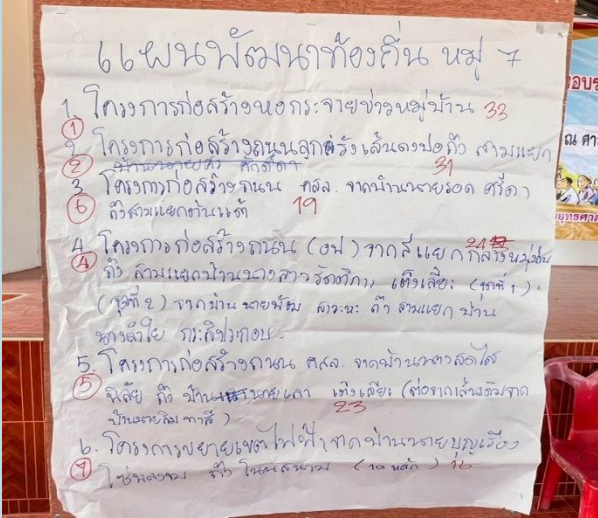 แผนพัฒนาท้องถิ่น หมู่ 7
1. โครงการก่อสร้างหอกระจายข่าวหมู่บ้าน 33
①
2. โครงการก่อสร้างถนนลูกรังเส้นดงปอถึง สามแยก
② 31
3 โครงการก่อสร้างถนน คสล. จากบ้านนายรอด ศรีดา
⑥ ถึงสามแยกต้นแต้ 19
4. โครงการก่อสร้างถนน ( ) จากสี่แยกกลางหมู่บ้าน 24
④ ถึง สามแยกบ้านนางสาวรัตติการ เต็งเลียะ (จุดที่ 1)
(จุดที่ 2) จากบ้าน นายพ้วม สาวะหะ ถึง สามแยก บ้าน
นางลำใย กระสิประกอบ
5. โครงการก่อสร้างถนน คสล. จากบ้าน สดใส
⑤ พิลัย ถึง บ้าน นายเคา เต็งเลียะ (ต่อจากเส้นเดิมจาก
บ้านนายสิม ทาสี) 23
6. โครงการขยายเขตไฟฟ้าจากบ้านนายบุญเรือง
ถึง โนนสนาม